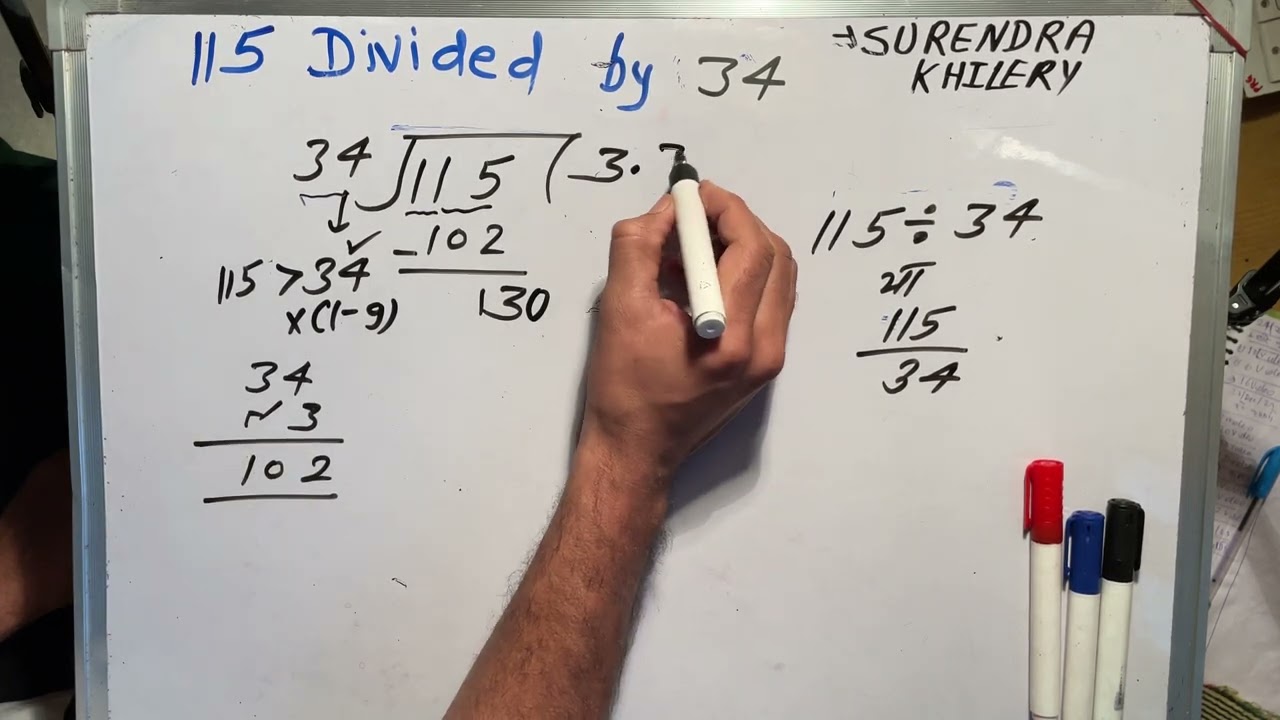 115 Divided by 34
→SURENDRA
KHILERY
34 115 3.
-102
130
115 > 34 ✓
×(1-9)
34
3
102
115 ÷ 34
या
115
34